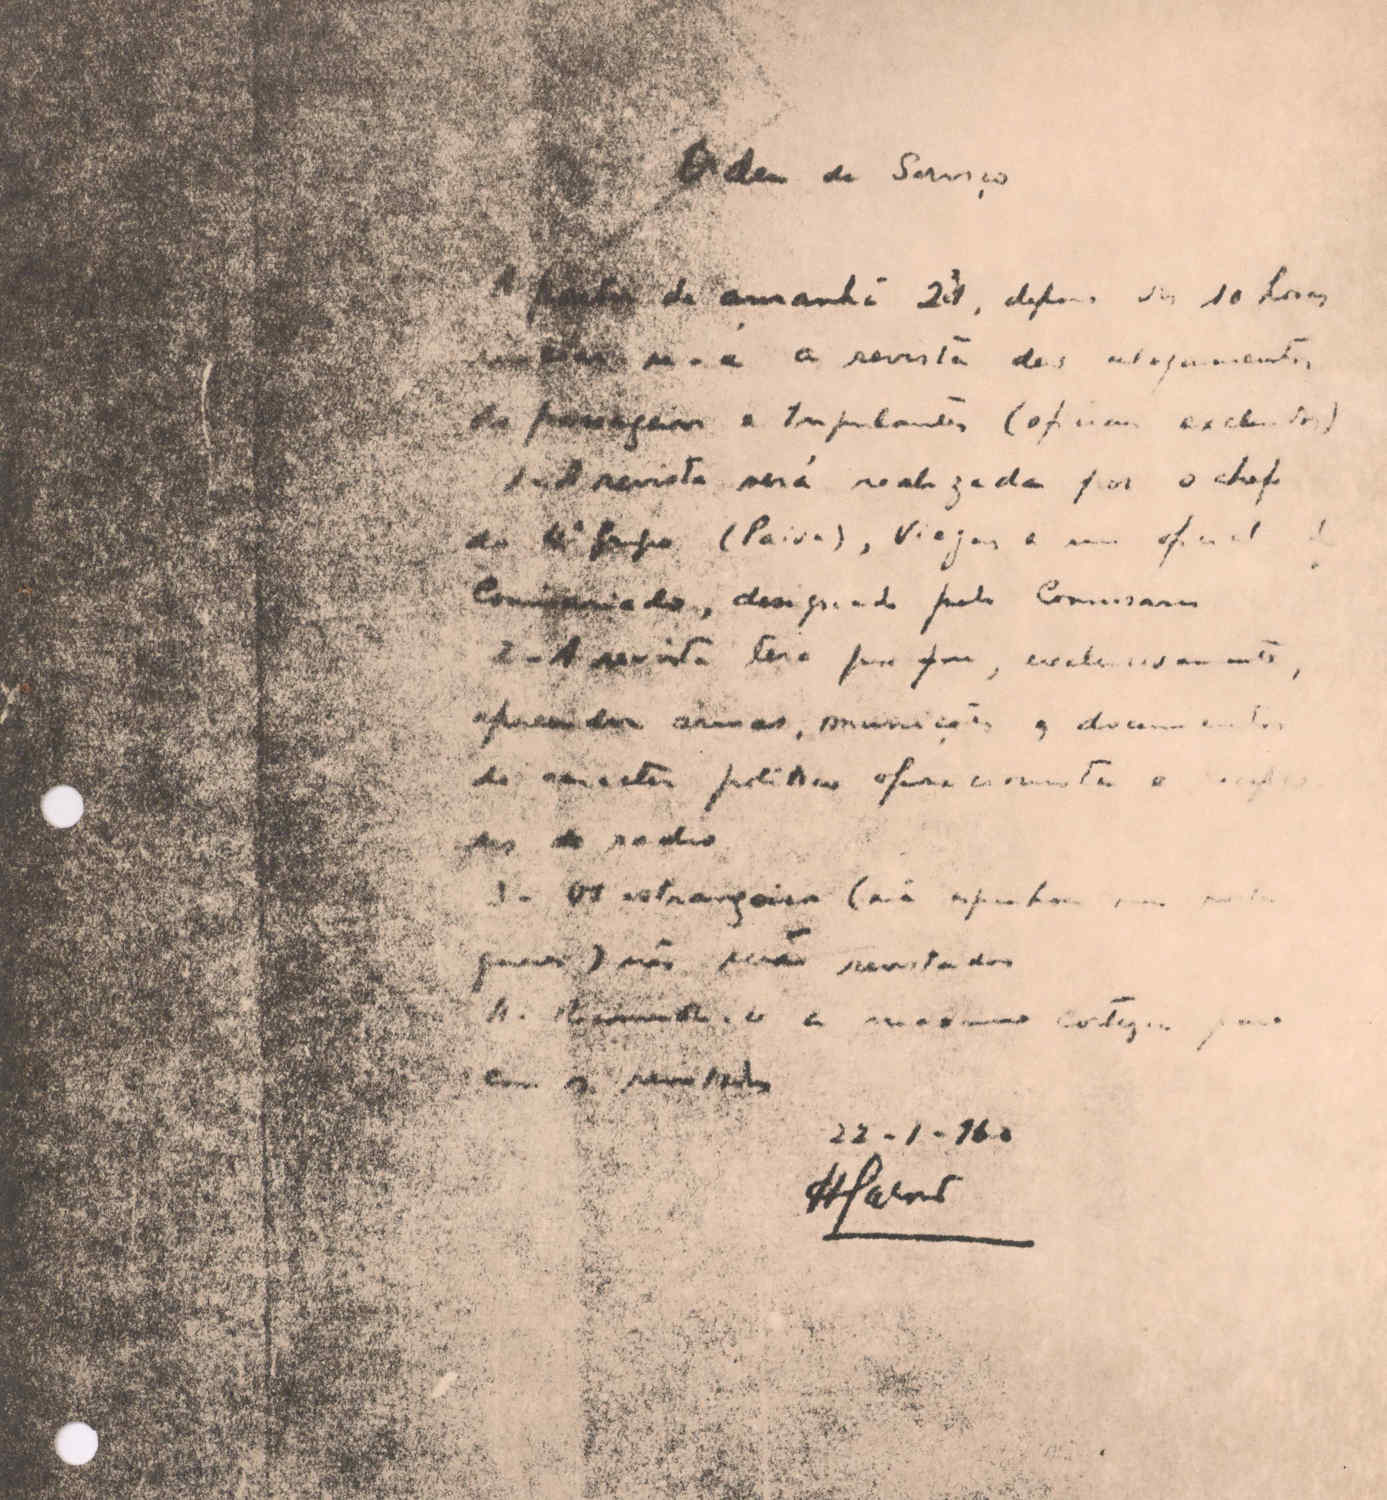 Ordem de Serviço
A partir de amanhã 23, depois das 10 horas
será a revista dos alojamentos
de passageiros e tripulantes (oficiais excluidos)
1 - A revista será realizada por o chefe
do 4º Grupo (Paiva), Viegas e um oficial do
Comissariado, designado pelo Comissario
2 - A revista terá por fim, exclusivamente,
apreender armas, munições e documentos
de caracter politico oposicionista e
de radio
3 - Os estrangeiros (não
) não serão revistados
4 - Recomenda-se a maxima cortezia para
com os revistados
22-1-960
HGalvão